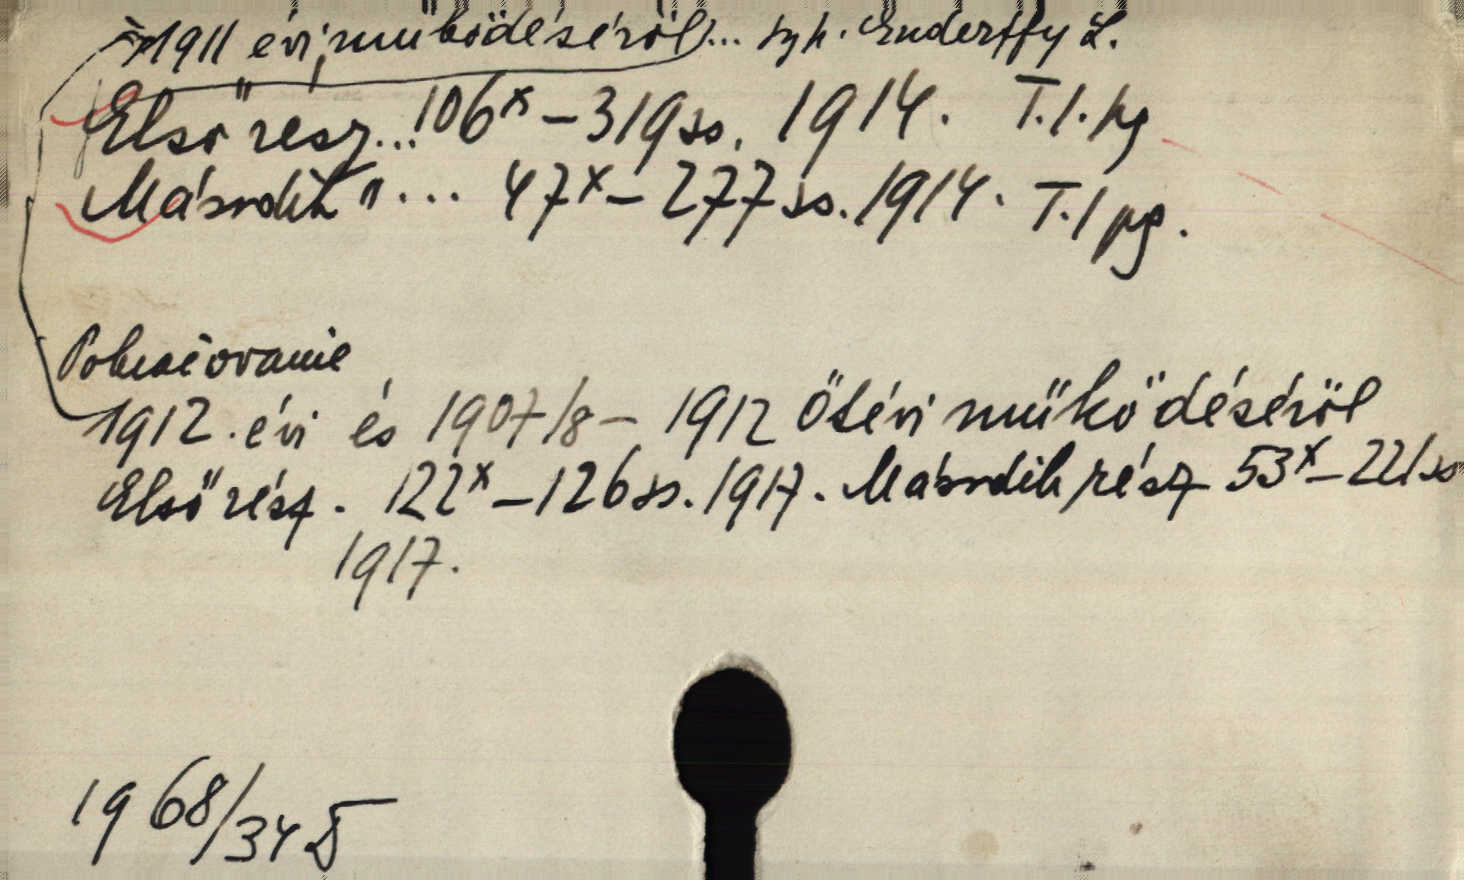 1911 évi működéséről... typ. Enderffy L.
Első rész... 106x - 319 ss. 1914. T.l. pg
Második " ... 47x - 277 ss. 1914. T.l pg.
Pokračovanie
1912. évi és 1907/8 - 1912 Ötévi működéséről
Első rész. 122x - 126 ss. 1917. Második rész 53x - 221 ss
1917.
1968/345